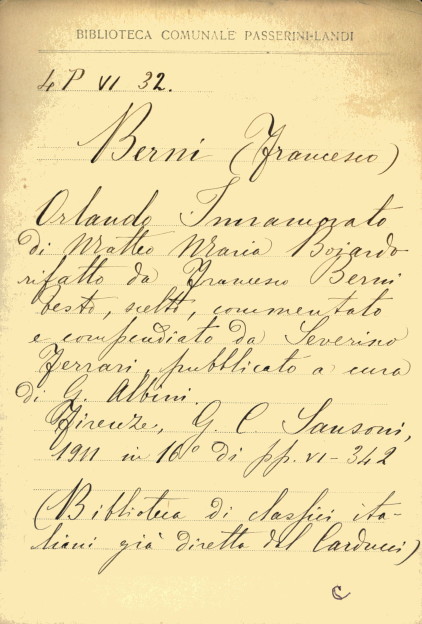 BIBLIOTECA COMUNALE PASSERINI-LANDI
4 P VI 32.
Berni (Francesco)
Orlando Innamorato
di Matteo Maria Bojardo
rifatto da Francesco Berni
testo, scelto, commentato
e compendiato da Severino
Ferrari, pubblicato a cura
di G. Albini.
Firenze, G. C Sansoni,
1911 in 16° di pp. VI-342
(Biblioteca di classici ita-
liani già diretta dal Carducci)
C